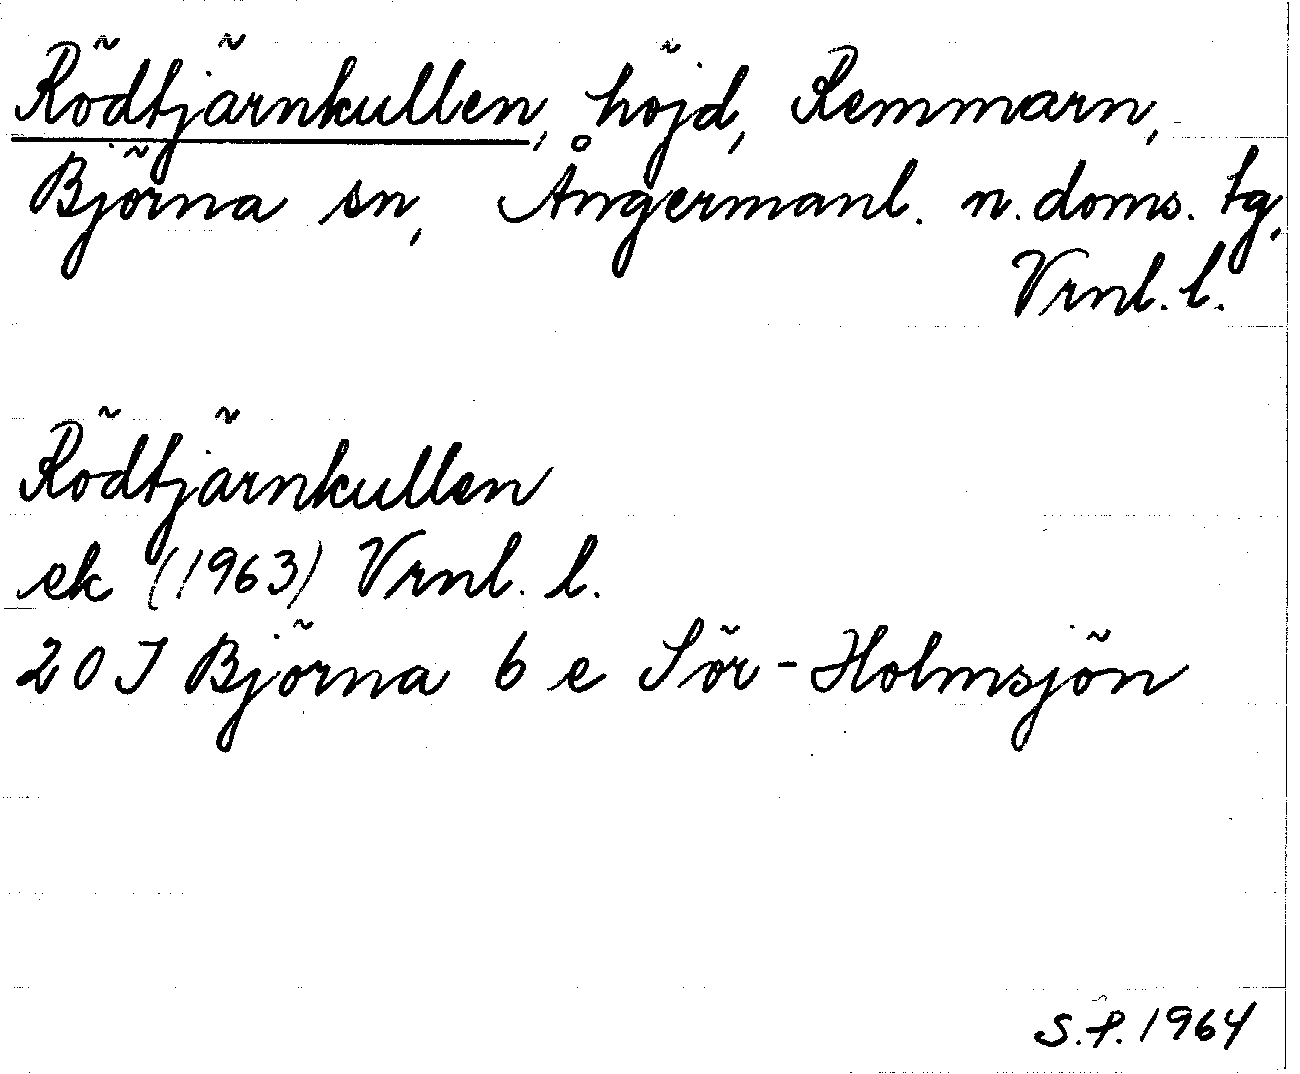 Rödtjärnkullen, höjd, Remmarn,
Björna sn, Ångermanl. n. doms. tg,
Vrnl. l.
Rödtjärnkullen
ek (1963) Vrnl. l.
20 J Björna 6 e Sör-Holmsjön
S.P. 1964